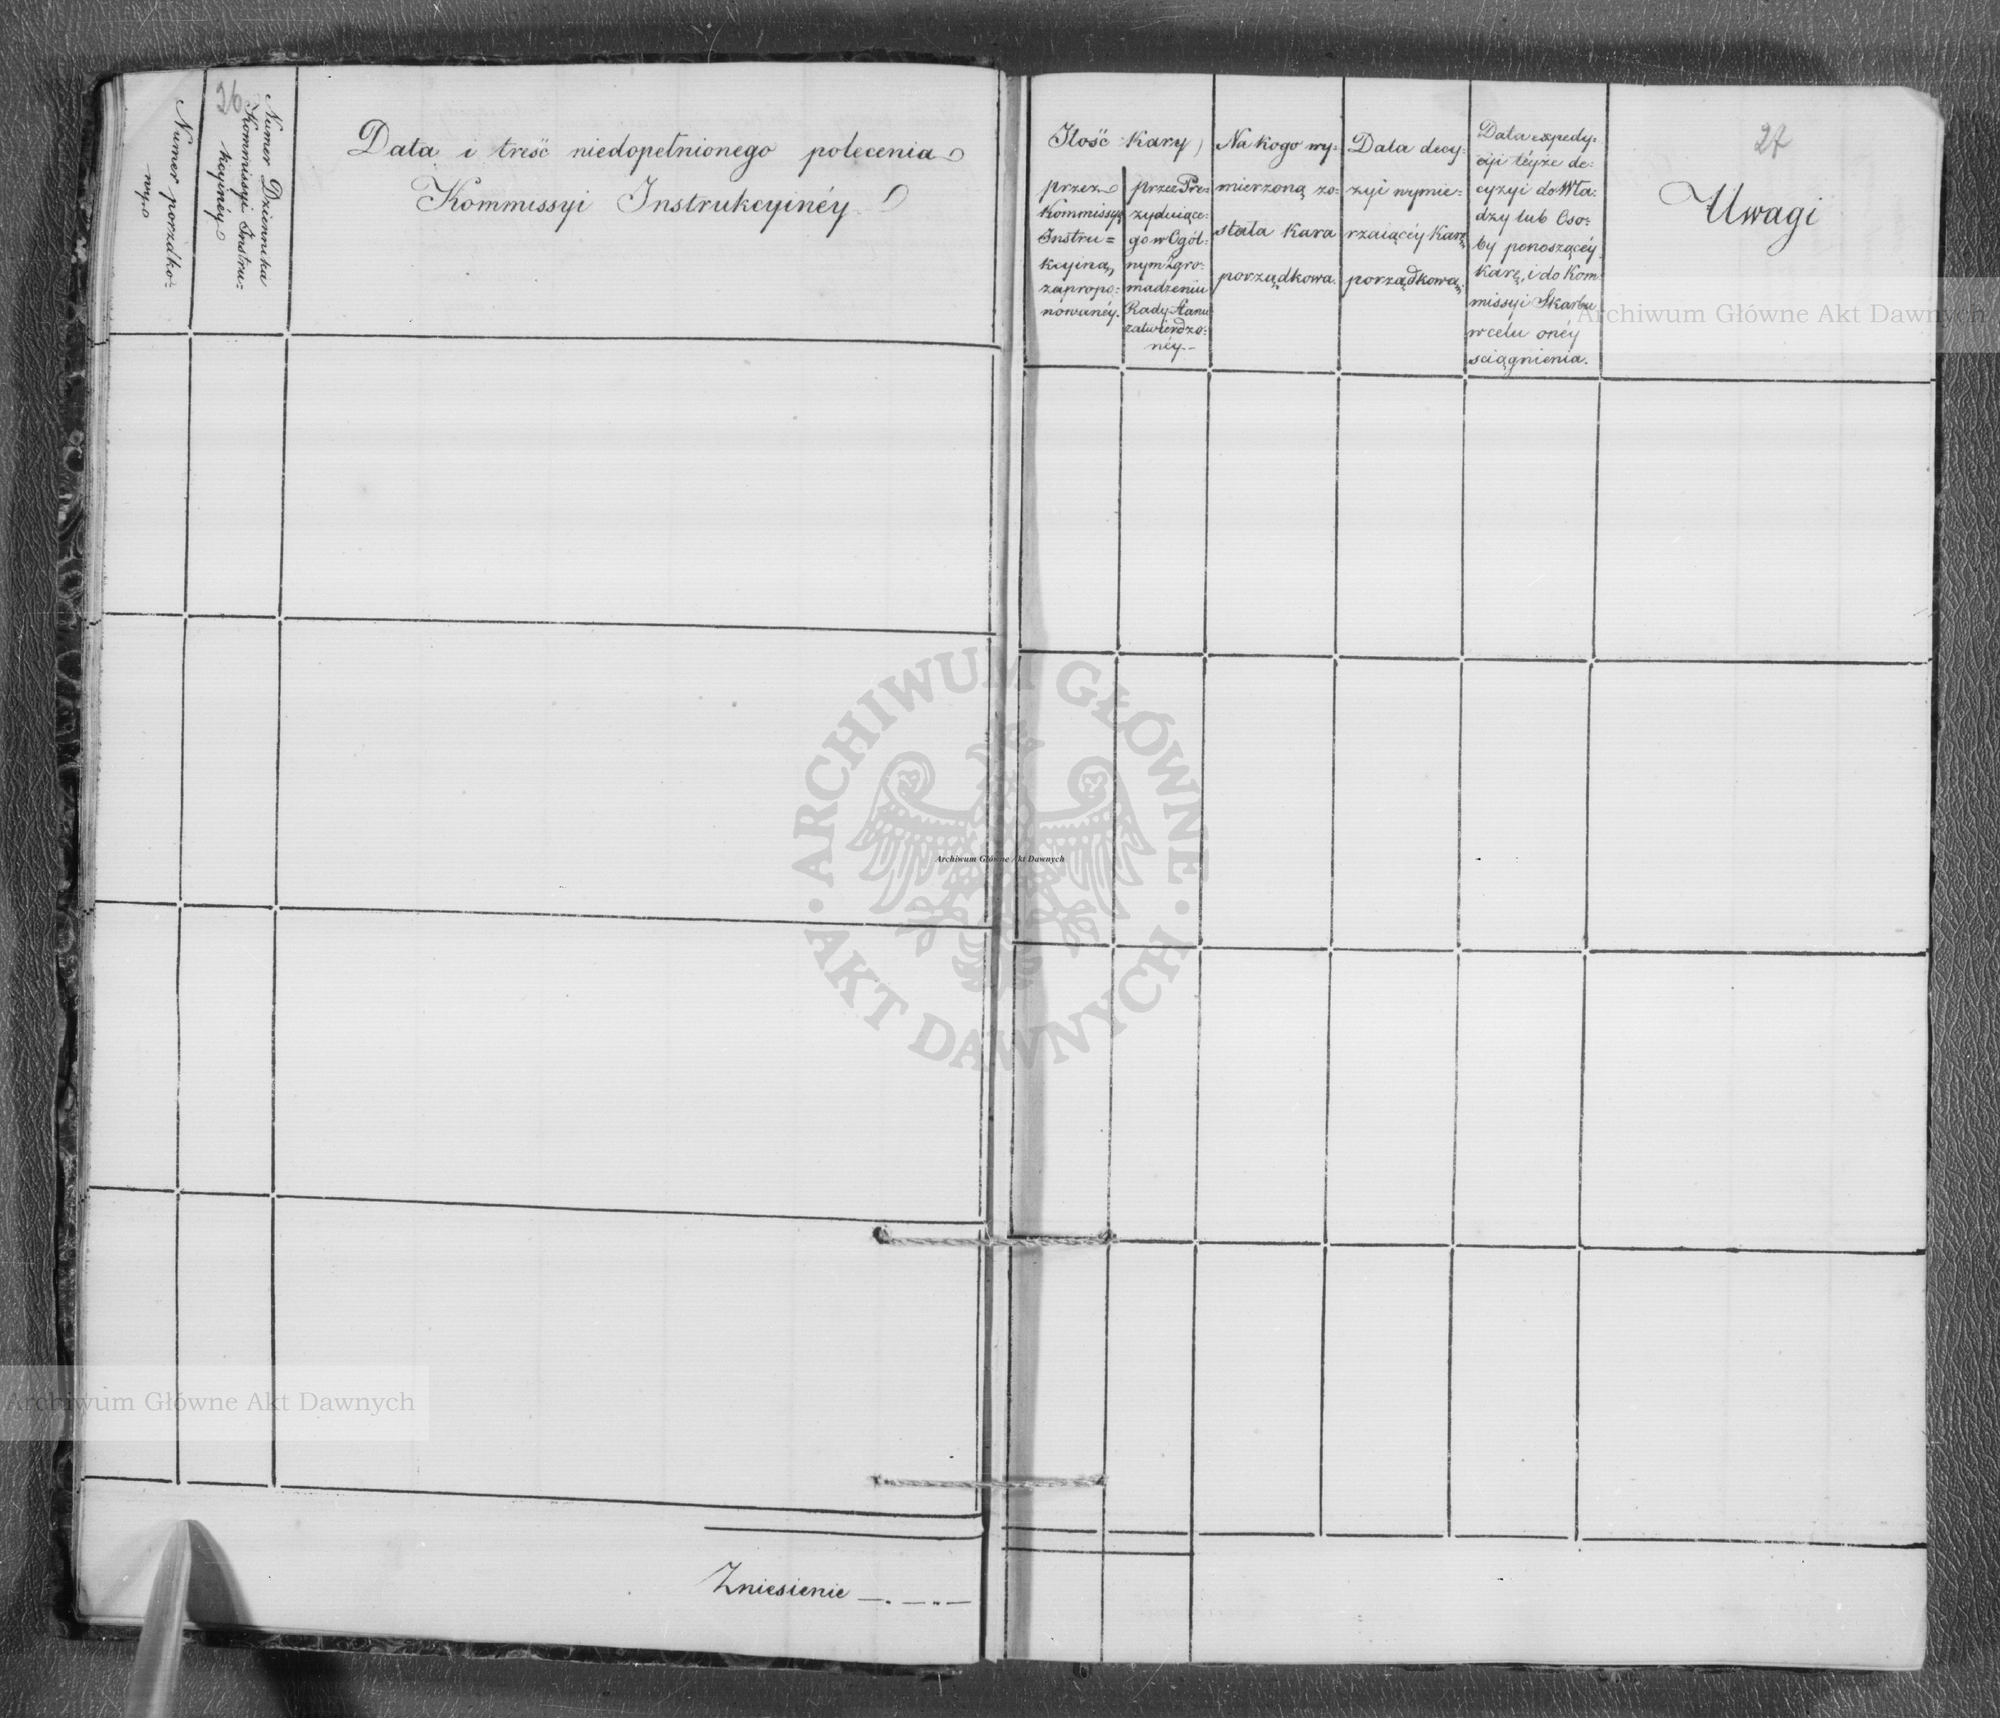 26
Numer porządko-
wy
Numer Dziennika
Kommissyi Instru-
kcyinéy
Data i treść niedopełnionego polecenia
Kommissyi Instrukcyinéy
Zniesienie
27
Ilość kary
przez
Kommissyę
Instru=
kcyiną
zapropo-
nowanéy.
przez Pre-
zyduiące-
go w Ogól-
nym Zgro-
madzeniu
Rady Stanu
zatwierdzo-
néy.
Na kogo wy-
mierzoną zo-
stała kara
porządkowa.
Data decy-
zyi wymie-
rzaiącéy karę
porządkową.
Data expedy-
cyi téyże de-
cyzyi do Wła-
dzy lub Oso-
by ponoszącéy
karę, i do Kom
missyi Skarbu
w celu onéy
sciągnienia.
Uwagi
Archiwum Główne Akt Dawnych
ARCHIWUM GŁÓWNE
AKT DAWNYCH
Archiwum Główne Akt Dawnych
Archiwum Główne Akt Dawnych